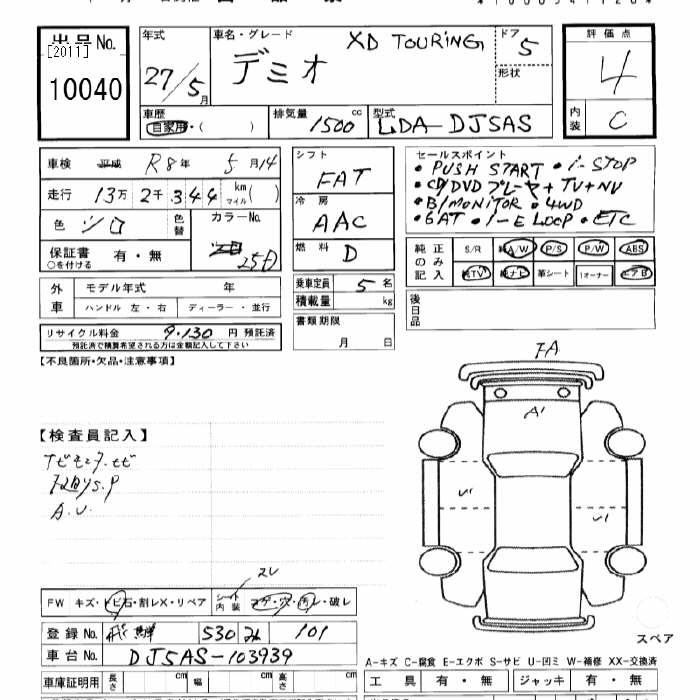 出品No.
[2011]
10040
年式
27/5月
車名・グレード
XD TOURING
デミオ
ドア 5
形状
評価点
4
内装
C
車歴
自家用・( )
排気量 1500 cc
型式 LDA-DJ5AS
車検 平成 R8年 5月14
走行 13万 2千 344 km マイル( )
色 シロ
色替
カラーNo.
25D
保証書 ○を付ける 有・無
外車
モデル年式 年
ハンドル 左・右
ディーラー・並行
リサイクル料金 9.130 円 預託済
預託済で積算希望される方は金額記入して下さい
シフト
FAT
冷房
AAC
燃料 D
乗車定員 5 名
積載量 kg
書類期限
月 日
セールスポイント
・PUSH START ・i-STOP
・CD/DVDプレーヤ+TV+NV
・B/MONITOR ・4WD
・6AT ・i-E LOOP ・ETC
純正のみ記入
S/R 純A/W P/S P/W ABS
純TV 純ナビ 革シート 1オーナー エアB
後日品
【不良箇所・欠品・注意事項】
【検査員記入】
A.U.
FA
A1
U1
U1
スペア
FW キズ・トビ石・割レX・リペア
シート内装
コゲ・穴・汚レ・破レ
スレ
登録No. 530 101
車台No. DJ5AS-103939
車庫証明用 長さ cm 幅 cm 高さ cm
A-キズ C-腐食 E-エクボ S-サビ U-凹ミ W-補修 XX-交換済
工具 有・無 ジャッキ 有・無